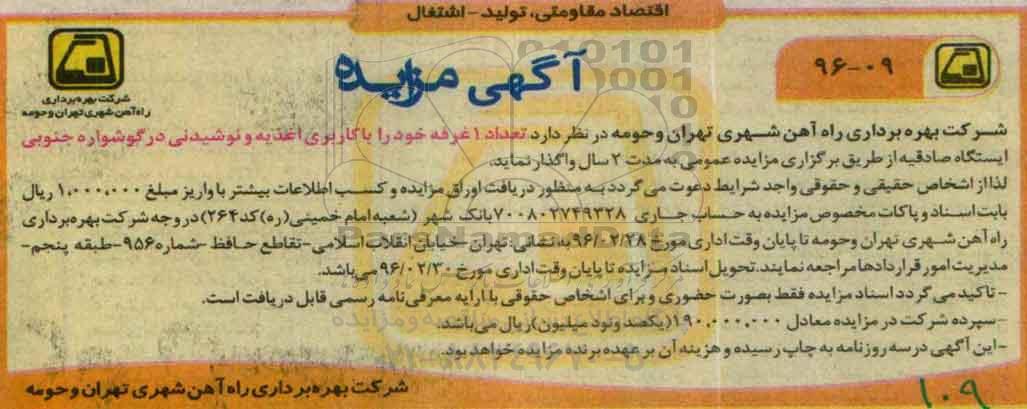 اقتصاد مقاومتی، تولید - اشتغال
۹۶-۰۹
آگهی مزایده
شرکت بهره‌برداری
راه‌آهن شهری تهران و حومه
شرکت بهره برداری راه آهن شهری تهران و حومه در نظر دارد تعداد ۱ غرفه خود را با کاربری اغذیه و نوشیدنی در گوشواره جنوبی
ایستگاه صادقیه از طریق برگزاری مزایده عمومی به مدت ۲ سال واگذار نماید.
لذا از اشخاص حقیقی و حقوقی واجد شرایط دعوت می گردد به منظور دریافت اوراق مزایده و کسب اطلاعات بیشتر با واریز مبلغ ۱،۰۰۰،۰۰۰ ریال
بابت اسناد و پاکات مخصوص مزایده به حساب جاری ۷۰۰۸۰۲۷۴۹۳۲۸ بانک شهر (شعبه امام خمینی(ره) کد ۲۶۴) در وجه شرکت بهره‌برداری
راه آهن شهری تهران و حومه تا پایان وقت اداری مورخ ۹۶/۰۲/۲۸ به نشانی: تهران - خیابان انقلاب اسلامی - تقاطع حافظ - شماره ۹۵۶ - طبقه پنجم -
مدیریت امور قراردادها مراجعه نمایند. تحویل اسناد مزایده تا پایان وقت اداری مورخ ۹۶/۰۲/۳۰ می باشد.
- تاکید می گردد اسناد مزایده فقط بصورت حضوری و برای اشخاص حقوقی با ارایه معرفی نامه رسمی قابل دریافت است.
- سپرده شرکت در مزایده معادل ۱۹۰،۰۰۰،۰۰۰ (یکصد و نود میلیون) ریال می‌باشد.
- این آگهی در سه روزنامه به چاپ رسیده و هزینه آن بر عهده برنده مزایده خواهد بود.
شرکت بهره‌برداری راه آهن شهری تهران و حومه
۱۰۹